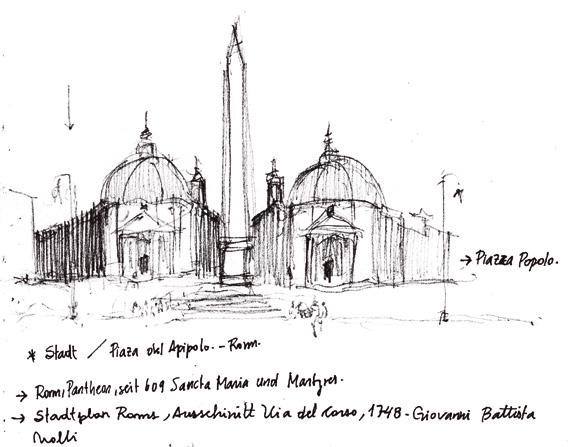 → Piazza Popolo.
* Stadt / Piaza del Apipolo. - Rom.
→ Rom, Pantheon, seit 609 Sancta Maria und Martyres.
→ Stadtplan Roms, Ausschnitt Via del Corso, 1748 - Giovanni Battista
Nolli